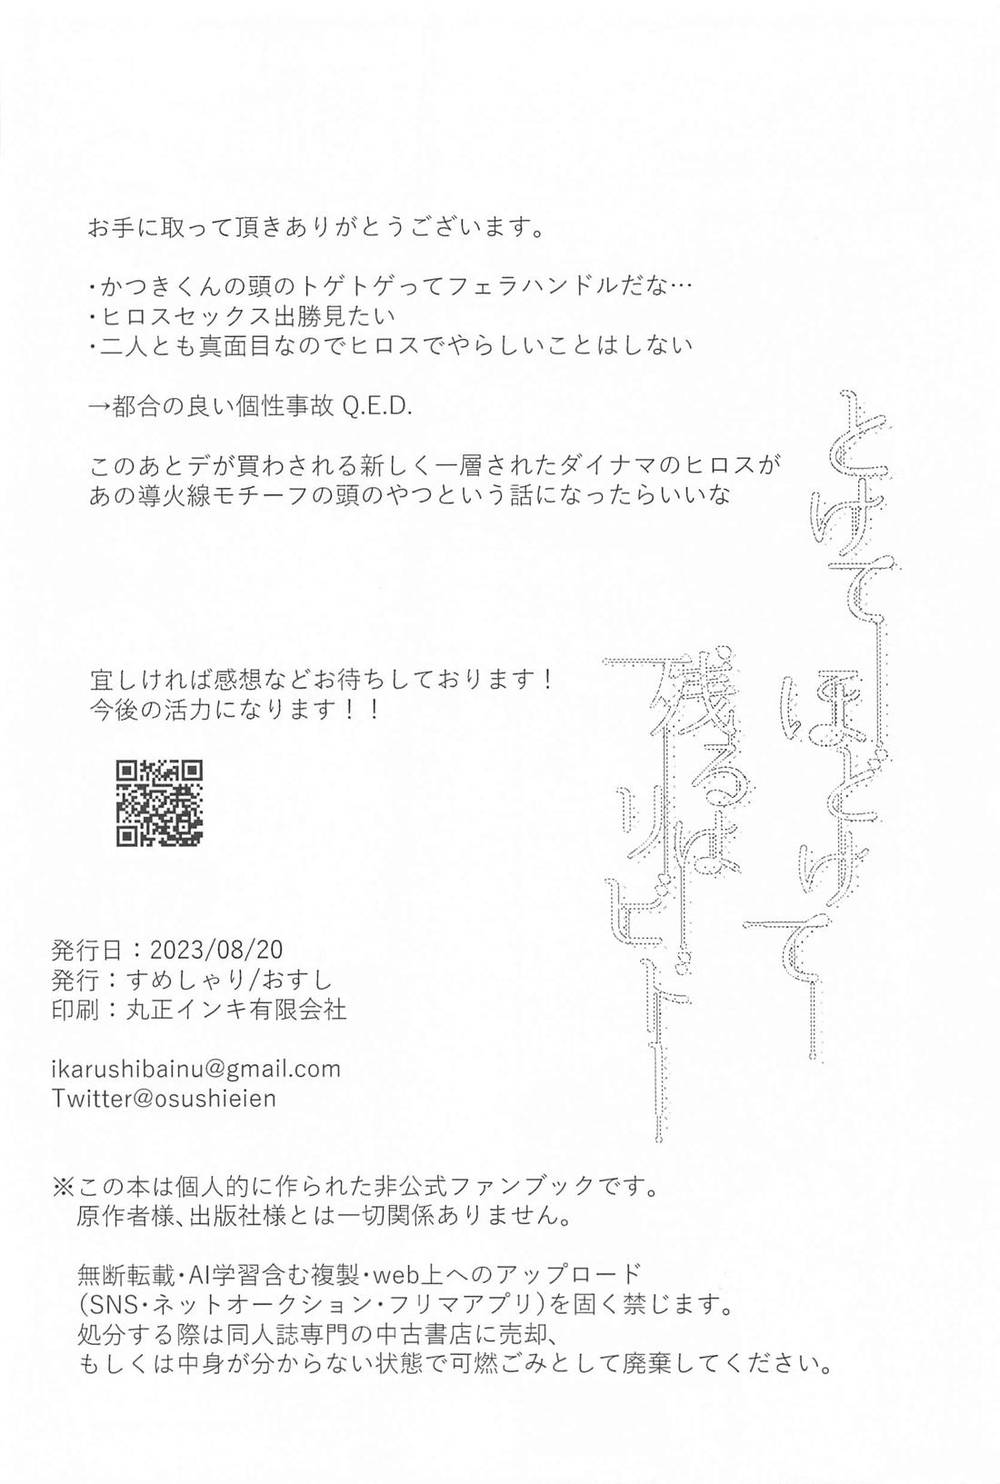 お手に取って頂きありがとうございます。
・かつきくんの頭のトゲトゲってフェラハンドルだな…
・ヒロスセックス出勝見たい
・二人とも真面目なのでヒロスでやらしいことはしない
→都合の良い個性事故 Q.E.D.
このあとデが買わされる新しく一層されたダイナマのヒロスが
あの導火線モチーフの頭のやつという話になったらいいな
とけて
ほどけて
残るは
リビドー
宜しければ感想などお待ちしております！
今後の活力になります！！
発行日：2023/08/20
発行：すめしゃり/おすし
印刷：丸正インキ有限会社
ikarushibainu@gmail.com
Twitter@osushieien
※この本は個人的に作られた非公式ファンブックです。
原作者様、出版社様とは一切関係ありません。
無断転載・AI学習含む複製・web上へのアップロード
（SNS・ネットオークション・フリマアプリ）を固く禁じます。
処分する際は同人誌専門の中古書店に売却、
もしくは中身が分からない状態で可燃ごみとして廃棄してください。